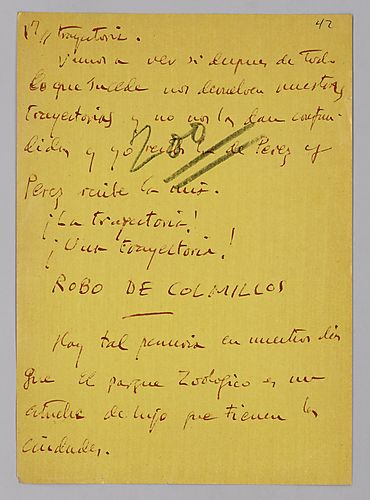 42
trayectoria.
Vamos a ver si despues de todo
lo que sucede nos devuelven nuestras
trayectorias y no nos las dan confun-
didas y yo recibo la de Perez y
Perez recibe la mia.
200
¡La trayectoria!
¡Una trayectoria!
ROBO DE COLMILLOS
Hay tal penuria en nuestros dias
que el parque Zoologico es un
de lujo que tienen las
ciudades.